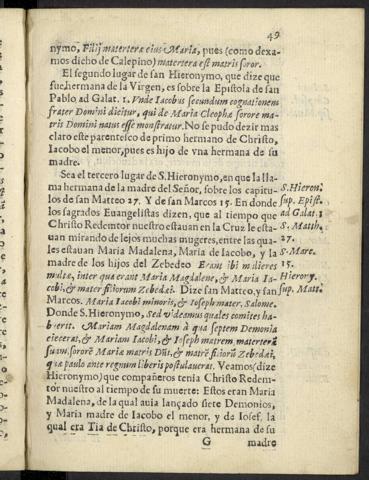 49
nymo, Filij matertera eius Maria, pues (como dexa-
mos dicho de Calepino) matertera est matris soror.
El segundo lugar de san Hieronymo, que dize que
fue hermana de la Virgen, es sobre la Epistola de san
Pablo ad Galat. 1. Vnde Iacobus secundum cognationem
frater Domini dicitur, qui de Maria Cleophæ sorore ma-
tris Domini natus esse monstratur. No se pudo dezir mas
claro este parentesco de primo hermano de Christo,
Iacobo el menor, pues es hijo de vna hermana de su
madre.
Sea el tercero lugar de S. Hieronymo, en que la lla-
ma hermana de la madre del Señor, sobre los capitu-
los de san Matteo 27. Y de san Marcos 15. En donde
los sagrados Euangelistas dizen, que al tiempo que
Christo Redemtor nuestro estauan en la Cruz le esta-
uan mirando de lejos muchas mugeres, entre las qua-
les estauan Maria Madalena, Maria de Iacobo, y la
madre de los hijos del Zebedeo Erant ibi mulieres
multæ, inter qua erant Maria Magdalene, & Maria Ia-
cobi, & mater filiorum Zebedæi. Dize san Matteo, y san
Marcos. Maria Iacobi minoris, & Ioseph mater, Salome.
Donde S. Hieronymo, Sed videamus quales comites ha-
buerit. Mariam Magdalenam à qua septem Demonia
eiecerat, & Mariam Iacobi, & Ioseph matrem, materterā
suam, sororē Mariæ matris Dñi, & matrē filiorū Zebedæi,
quæ paulo ante regnum liberis postulauerat. Veamos (dize
Hieronymo) que compañeros tenia Christo Redem-
tor nuestro al tiempo de su muerte: Estos eran Maria
Madalena, de la qual auia lançado siete Demonios,
y Maria madre de Iacobo el menor, y de Iosef, la
qual era Tia de Christo, porque era hermana de su
G madre
S. Hieron.
sup. Epist.
ad Galat. 1
S. Matth.
27.
S. Marc.
15.
Hierony.
sup. Matt.